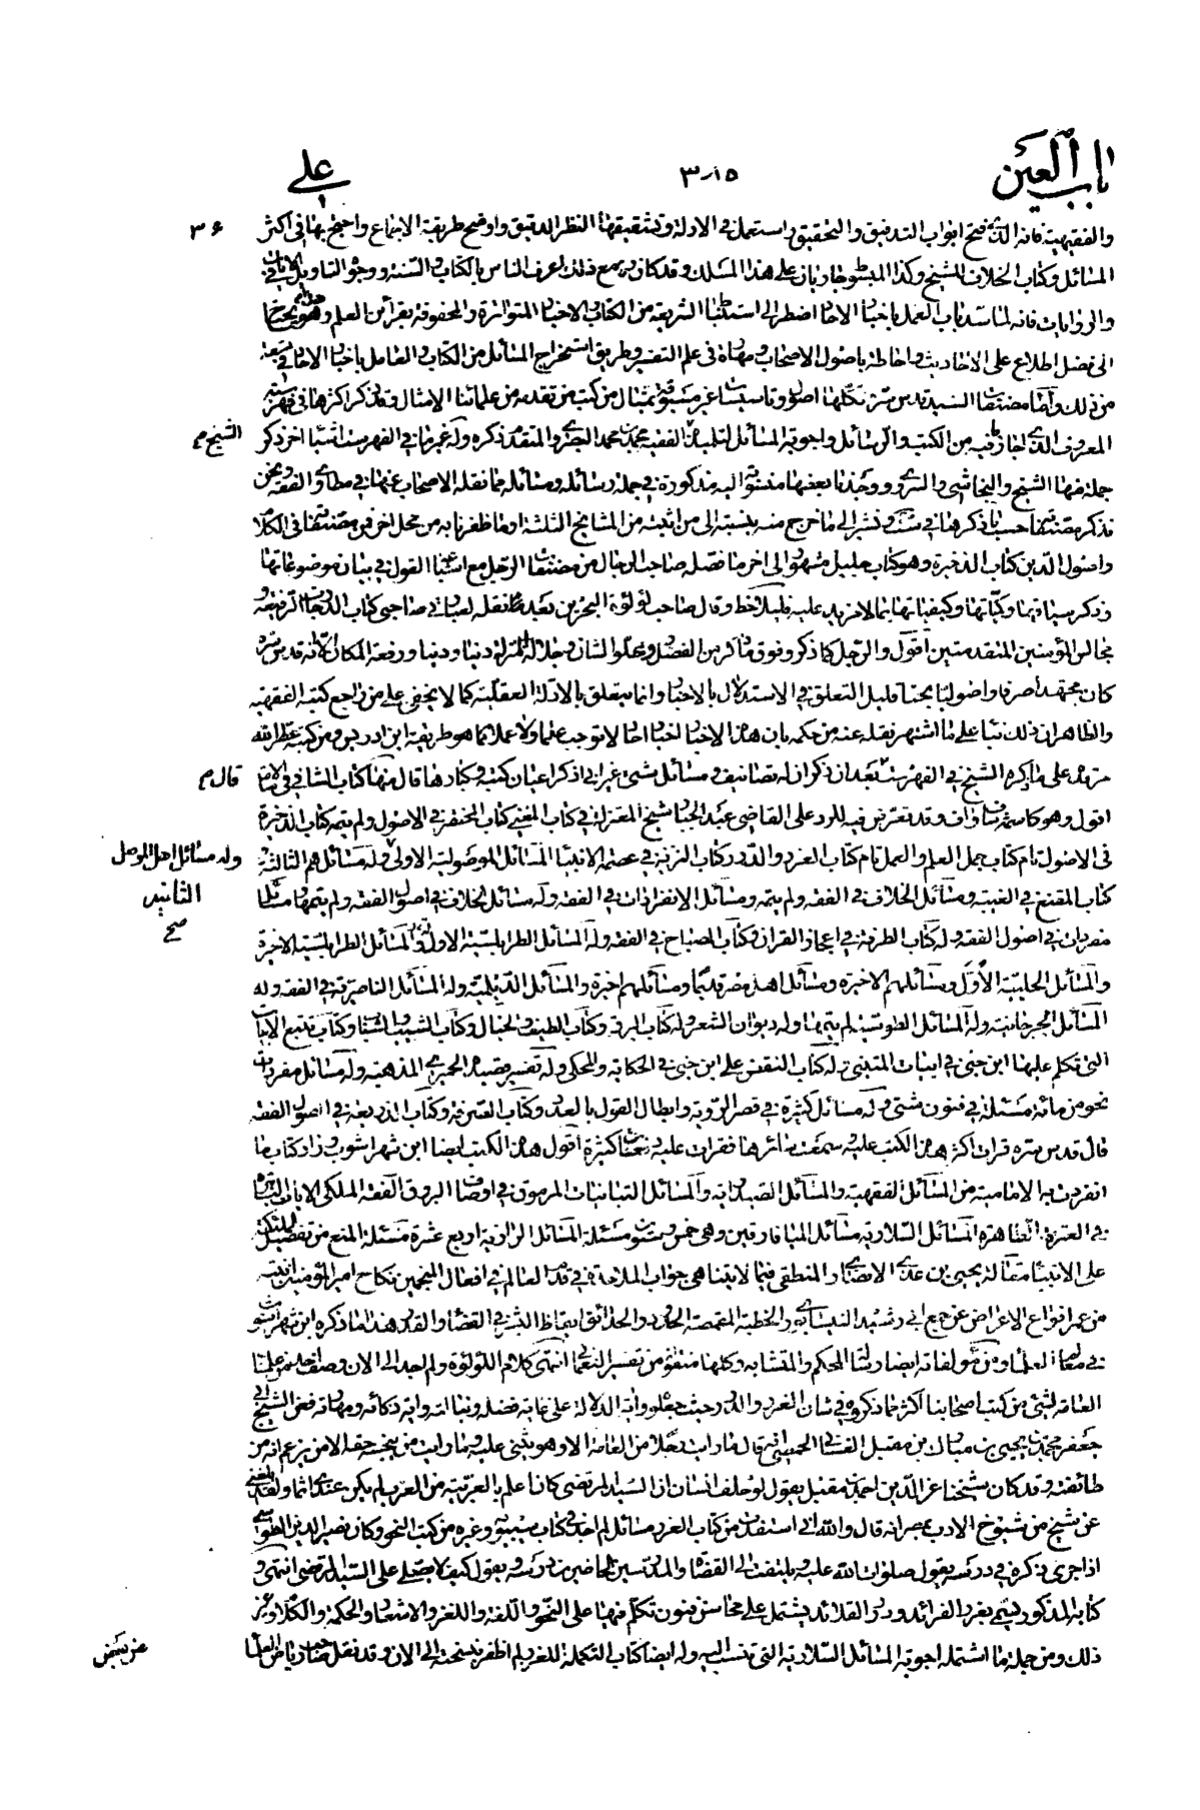 باب العين
٣٨٥
علي
والفقيهية فانه الذى فتح ابواب التدقيق والتحقيق واستعمل فى الادلة وتشقيقها النظر الدقيق واوضح طريقة الاجماع واحتج بها فى اكثر
٣۶
المسائل وكتاب الخلاف للشيخ وكذا المبسوط جاريان على هذا المسلك وقد كان ره مع ذلك اعرف الناس بالكتاب والسنة ووجوه التاويل فى الايات
والروايات فانه لما سد باب العمل باخبار الاحاد اضطر الى استنباط الشريعة من الكتاب والاخبار المتواترة والمحفوفة بقرائن العلم وهو يحتاج
الى فضل اطلاع على الاحاديث واحاطة باصول الاصحاب ومهارة فى علم التفسير وطريق استخراج المسائل من الكتاب والعامل باخبار الاحاد فى سعة
من ذلك واما مصنفات السيد قدس سره فكلها اصول وتاسيسات غير مسبوقة بمثال من كتب من تقدمه من علمائنا الامثال وقد ذكر اكثرها فى فهرسته
المعروف الذى اجاز فيه من الكتب والرسائل واجوبة المسائل لتلميذه الفقيه محمد بن محمد البصرى المتقدم ذكره وله غير ما فى الفهرست اشياء اخر ذكر
الشيخ م
جملة منها الشيخ والنجاشى والسروى ووجدنا بعضها منسوبة اليه مذكورة فى جملة رسائله ومسائله مما نقله الاصحاب عنها فى مطاوى الفقه ونحن
نذكر مصنفاته حسبما ذكرها فى ست ونشير الى ما خرج منه بنسبته الى من اثبته من المشايخ الثلثة او ما ظفرنا به من محل اخر فمن مصنفاته فى الكلام
واصول الدين كتاب الذخيرة وهو كتاب جليل مشهور الى اخر ما فصله صاحب الرجال من مصنفات الرجل مع اشباع القول فى بيان موضوعاتها
وذكر سياقها وكمياتها وكيفياتها بما لا مزيد عليه فليلاحظ وقال صاحب لؤلؤة البحرين بعد ما نقله لعبارتى صاحبى كتاب الدرجات الرفيعة و
مجالس المؤمنين المتقدمتين اقول والرجل كما ذكر وفوق ما ذكر من الفضل وعلو الشان وجلالة المنزلة دينا ودنيا ورفعة المكان الا انه قدس سره
كان مجتهدا صرفا واصوليا بحتا قليل التعلق فى الاستدلال بالاخبار وانما يتعلق بالادلة العقلية كما لا يخفى على من راجع كتبه الفقهية
والظاهر ان ذلك بناء على ما اشتهر نقله عنه من حكمه بان هذه الاخبار اخبار احاد لا توجب علما ولا عملا كما هو طريقة ابن ادريس ومن كتبه عطر الله
مرقده على ما ذكره الشيخ فى الفهرست بعد ان ذكر ان له تصانيف ومسائل شتى غير انى اذكر اعيان كتبه وكبارها قال منها كتاب الشافى فى الامامة
قال م
اقول وهو كاسمه شاف واف وقد تعرض فيه للرد على القاضى عبد الجبار شيخ المعتزلة فى كتاب المغنى كتاب الملخص فى الاصول ولم يتمه كتاب الذخيرة
فى الاصول تام كتاب جمل العلم والعمل تام كتاب الغرر والدرر وكتاب التنزيه فى عصمة الانبياء المسائل الموصلية الاولى وله مسائلهم الثالثة
وله مسائل اهل الموصل
الثانية
صح
كتاب المقنع فى الغيبة ومسائل الخلاف فى الفقه ولم يتمه ومسائل الانفرادات فى الفقه وله مسائل الخلاف فى اصول الفقه ولم يتمها ومسائل
مفردات فى اصول الفقه وله كتاب الصرفة فى اعجاز القران وكتاب المصباح فى الفقه وله المسائل الطرابلسية الاولى والمسائل الطرابلسية الاخيرة
والمسائل الحلبية الاولى ومسائلهم الاخيرة ومسائل اهل مصر قديما ومسائلهم اخيرة والمسائل الديلمية وله المسائل الناصرية فى الفقه وله
المسائل الجرجانية وله المسائل الطوسية لم يتمها وله ديوان الشعر وله كتاب البرق وكتاب الطيف والخيال وكتاب الشيب والشباب وكتاب تتبع الابيات
التى تكلم عليها ابن جنى فى ابيات المتنبى وله كتاب النقض على ابن جنى فى الحكاية والمحكى وله تفسير قصيدة الحميرى المذهبة وله مسائل مفردات
نحو من مائة مسئلة فى فنون شتى وله مسائل كثيرة فى نصر الرؤية وابطال القول بالعدد وكتاب الصرفة وكتاب الذريعة فى اصول الفقه
قال قدس سره قرات اكثر هذه الكتب عليه وسمعت سائرها فقرات عليه دفعات كثيرة اقول هذه الكتب ايضا ابن شهر اشوب وزاد كتاب ما
انفردت به الامامية من المسائل الفقهية والمسائل الصيداوية والمسائل التبانيات المرموق فى اوصاف البروق الفقه الملكى الايات الباهرة
فى العترة الطاهرة المسائل السلارية مسائل الميافارقين وهى خمس وستون مسئلة المسائل الرازية اربع عشرة مسئلة المنع من تفضيل الملئكة
على الانبياء مقالة يحيى بن عدى الانصارى المنطقى فيما لا يتناهى جواب الملاحدة فى قدم العالم فى افعال المنجمين نكاح امير المؤمنين ابنته
من عمر انواع الاعراض عن جمع ابى رشيد النيسابورى والخطبة المقمصة الحدود والحدائق ايقاظ البشر فى القضاء والقدر هذا ما ذكره ابن شهر اشوب
فى معالم العلماء ومن مؤلفاته ايضا رسالة المحكم والمتشابه وكلها منقولة من تفسير النعمانى انتهى كلام اللؤلؤة ولم اجد الى الان وصف احد من علماء
العامة لشئ من كتب اصحابنا اكثر مما ذكروه فى شان الغرر والدرر حيث جعلوه اية الدلالة على غاية فضله ونباهته واية ذكائه ومهارته فعن الشيخ ابى
جعفر محمد بن يحيى بن مبارك بن مقبل الغسانى الحمصى انه قال ما رايت رجلا من العامة الا وهو يثنى عليه وما رايت من يبخسه حقه الا من يزعم انه من
طائفته وقد كان شيخنا عز الدين احمد بن مقبل يقول لو حلف انسان ان السيد المرتضى كان اعلم بالعربية من العرب لم يكن عندى اثما ولقد بلغنى
عن شيخ من شيوخ الادب بمصر انه قال والله انى استفدت من كتاب الغرر مسائل لم اجدها فى كتاب سيبويه وغيره من كتب النحو وكان نصير الدين الطوسى
اذا جرى ذكره فى درسه يقول صلوات الله عليه ويلتفت الى القضاة والمدرسين الحاضرين درسه ويقول كيف لا يصلى على السيد المرتضى انتهى و
كتابه المذكور يسمى بغرر الفرائد ودرر القلائد يشتمل على محاسن فنون تكلم فيها على النحو واللغة واللغز والاشعار والحكمة والكلام وغير
ذلك ومن جملة ما اشتمله اجوبة المسائل السلارية التى تنسب اليه وله ايضا كتاب التكملة للغرر لم اظفر بنسخته الى الان وقد نقل صاحب رياض العلماء
عن بعض